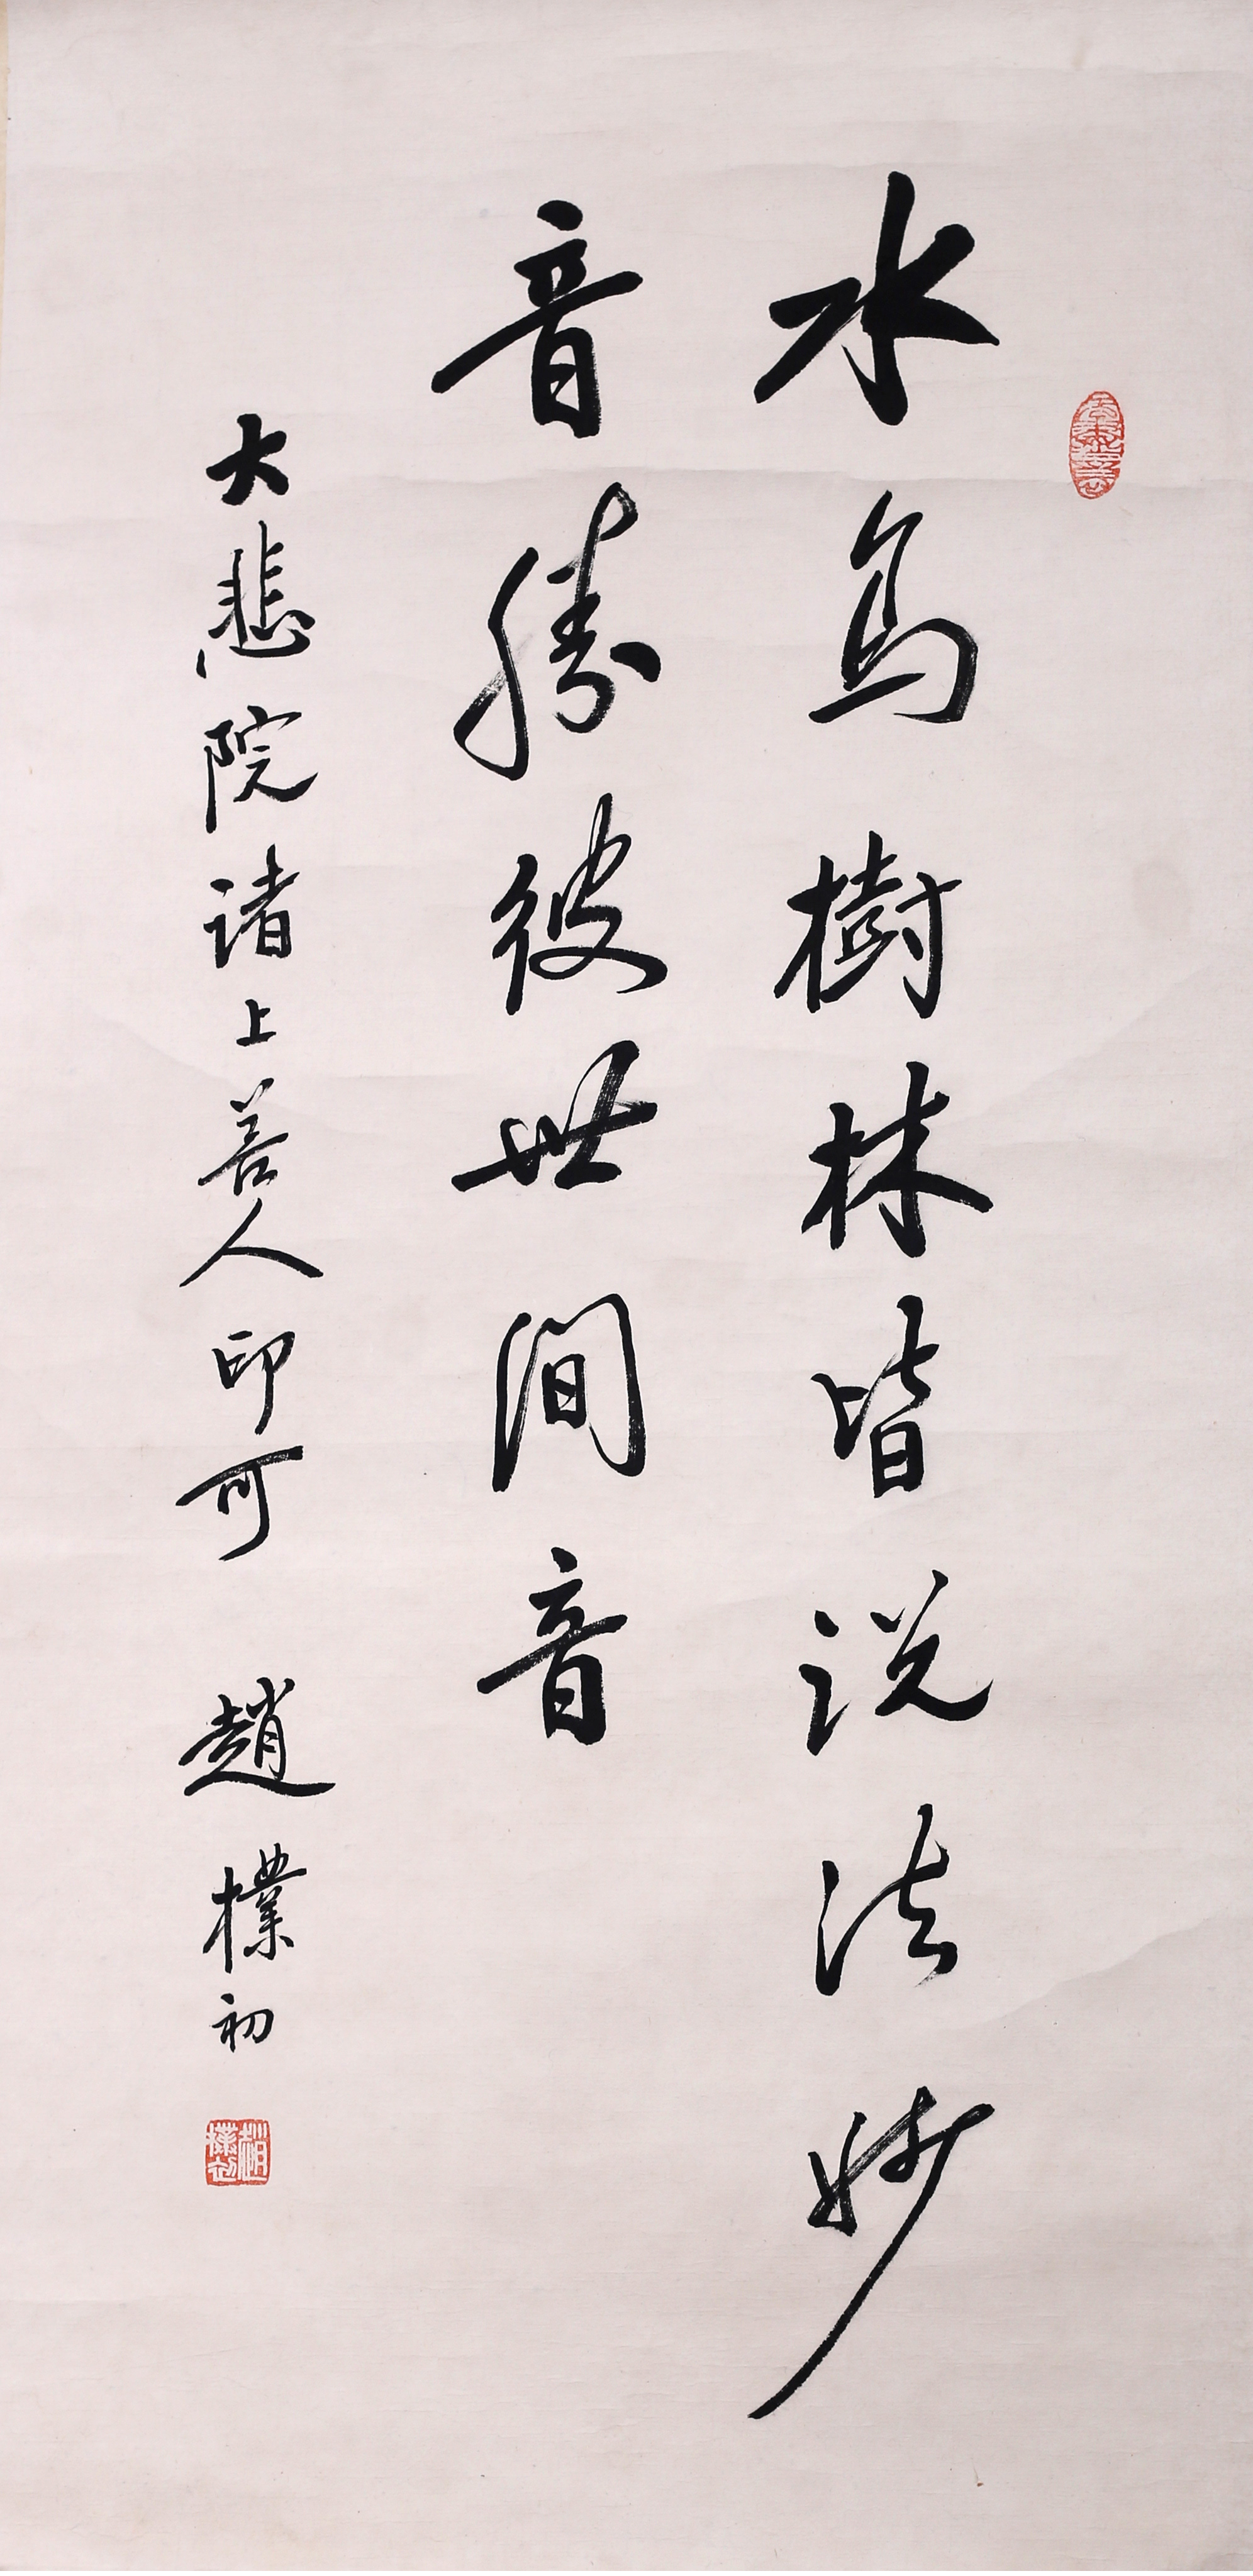 水鳥樹林皆説法妙
音勝彼世間音
大悲院诸上善人印可 趙樸初
趙樸初